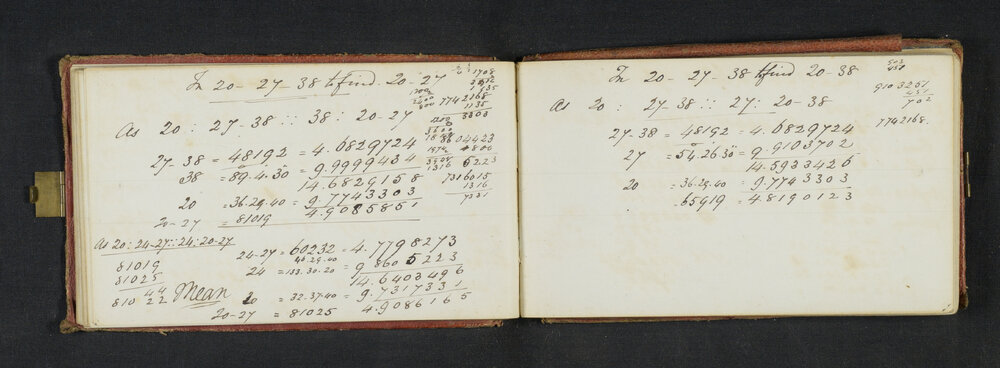 In 20-27-38 to find 20-27
As 20 : 27-38 :: 38 : 20-27
27-38 = 48192 = 4.6829724
38 = 89.4.30 = 9.9999434
14.6829158
20 = 36.29.40 = 9.7743303
20-27 = 81019 = 4.9085851
As 20 : 24-27 :: 24 : 20-27
24-27 = 60232 = 4.7798273
24 = 133.30.20 = 9.8605223
14.6403496
20 = 32.37.40 = 9.7317331
20-27 = 81025 4.9086165
81019
81025
44
81022 Mean
1708
7742168
1135
3303
04423
4800
5223
7316015
1316
7331
In 20-27-38 to find 20-38
As 20 : 27-38 :: 27 : 20-38
27-38 = 48192 = 4.6829724
27 = 54.26.30 = 9.9103702
14.5933426
20 = 36.29.40 = 9.7743303
65919 = 4.8190123
503
451
9103251
451
702
7742168